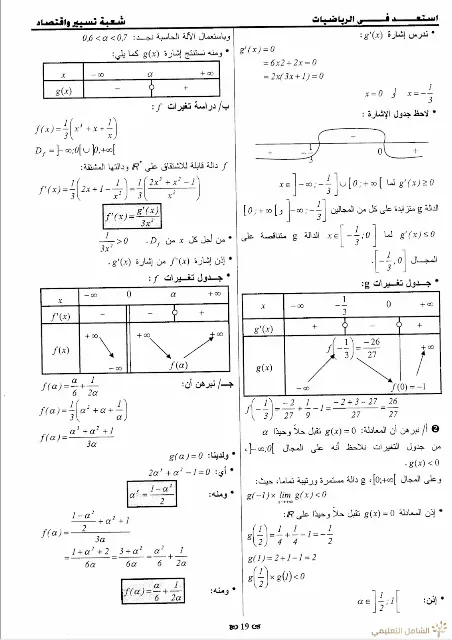 استعد فى الرياضيات
شعبة تسيير واقتصاد
• ندرس إشارة g'(x):
g'(x) = 0
= 6x² + 2x = 0
= 2x(3x + 1) = 0
x = 0 و x = -1/3
• لاحظ جدول الإشارة:
− + −1/3 − 0 +
g'(x) ≥ 0 لما x ∈ ]-∞ ; -1/3] ∪ [0 ; +∞[
الدالة g متزايدة على كل من المجالين ]-∞ ; -1/3] و [0 ; +∞[
g'(x) ≤ 0 لما x ∈ [-1/3 ; 0] الدالة g متناقصة على
المجال [-1/3 , 0].
• جدول تغيرات g:
x −∞ −1/3 0 +∞
g'(x) + − +
g(x) −∞ f(-1/3) = -26/27 f(0) = -1 +∞
f(-1/3) = -2/27 + 1/9 - 1 = (-2 + 3 - 27)/27 = 26/27
❷ أ/ نبرهن أن المعادلة: g(x) = 0 تقبل حلاً وحيدًا α
من جدول التغيرات نلاحظ أنه على المجال ]-∞;0[،
g(x) < 0.
وعلى المجال ]0;+∞[، g دالة مستمرة ورتيبة تماما، حيث:
g(-1) × lim g(x) < 0
• إذن المعادلة g(x) = 0 تقبل حلاً وحيدًا على R:
g(1/2) = 1/4 + 1/4 - 1 = -1/2
g(1) = 2 + 1 - 1 = 2
g(1/2) × g(1) < 0
• إذن: α ∈ ]1/2 ; 1[
وباستعمال الآلة الحاسبة نجد: 0,6 < α < 0,7
• ومنه نستنتج إشارة g(x) كما يلي:
x −∞ α +∞
g(x) − +
ب/ دراسة تغيرات f:
f(x) = 1/3 (x² + x + 1/x)
D_f = ]-∞;0[ ∪ ]0,+∞[
f دالة قابلة للاشتقاق على R* ودالتها المشتقة:
f'(x) = 1/3 (2x + 1 - 1/x²) = 1/3 ((2x³ + x² - 1)/x²)
f'(x) = g'(x)/3x²
• من أجل كل x من D_f، 1/3x² > 0
• إذن إشارة f'(x) من إشارة g'(x).
• جدول تغيرات f:
x −∞ 0 α +∞
f'(x) − − +
f(x) +∞ −∞ +∞ f(α) +∞
جـ/ نبرهن أن: f(α) = α/6 + 1/2α
f(α) = 1/3 (α² + α + 1/α)
f(α) = (α³ + α² + 1)/3α
• ولدينا: g(α) = 0
• أي: 2α³ + α² - 1 = 0
• ومنه: α³ = (1 - α²)/2
f(α) = ((1 - α²)/2 + α² + 1)/3α
= (1 + α² + 2)/6α = (3 + α²)/6α = α/6 + 1/2α
• ومنه: f(α) = α/6 + 1/2α
19
الشامل التعليمي